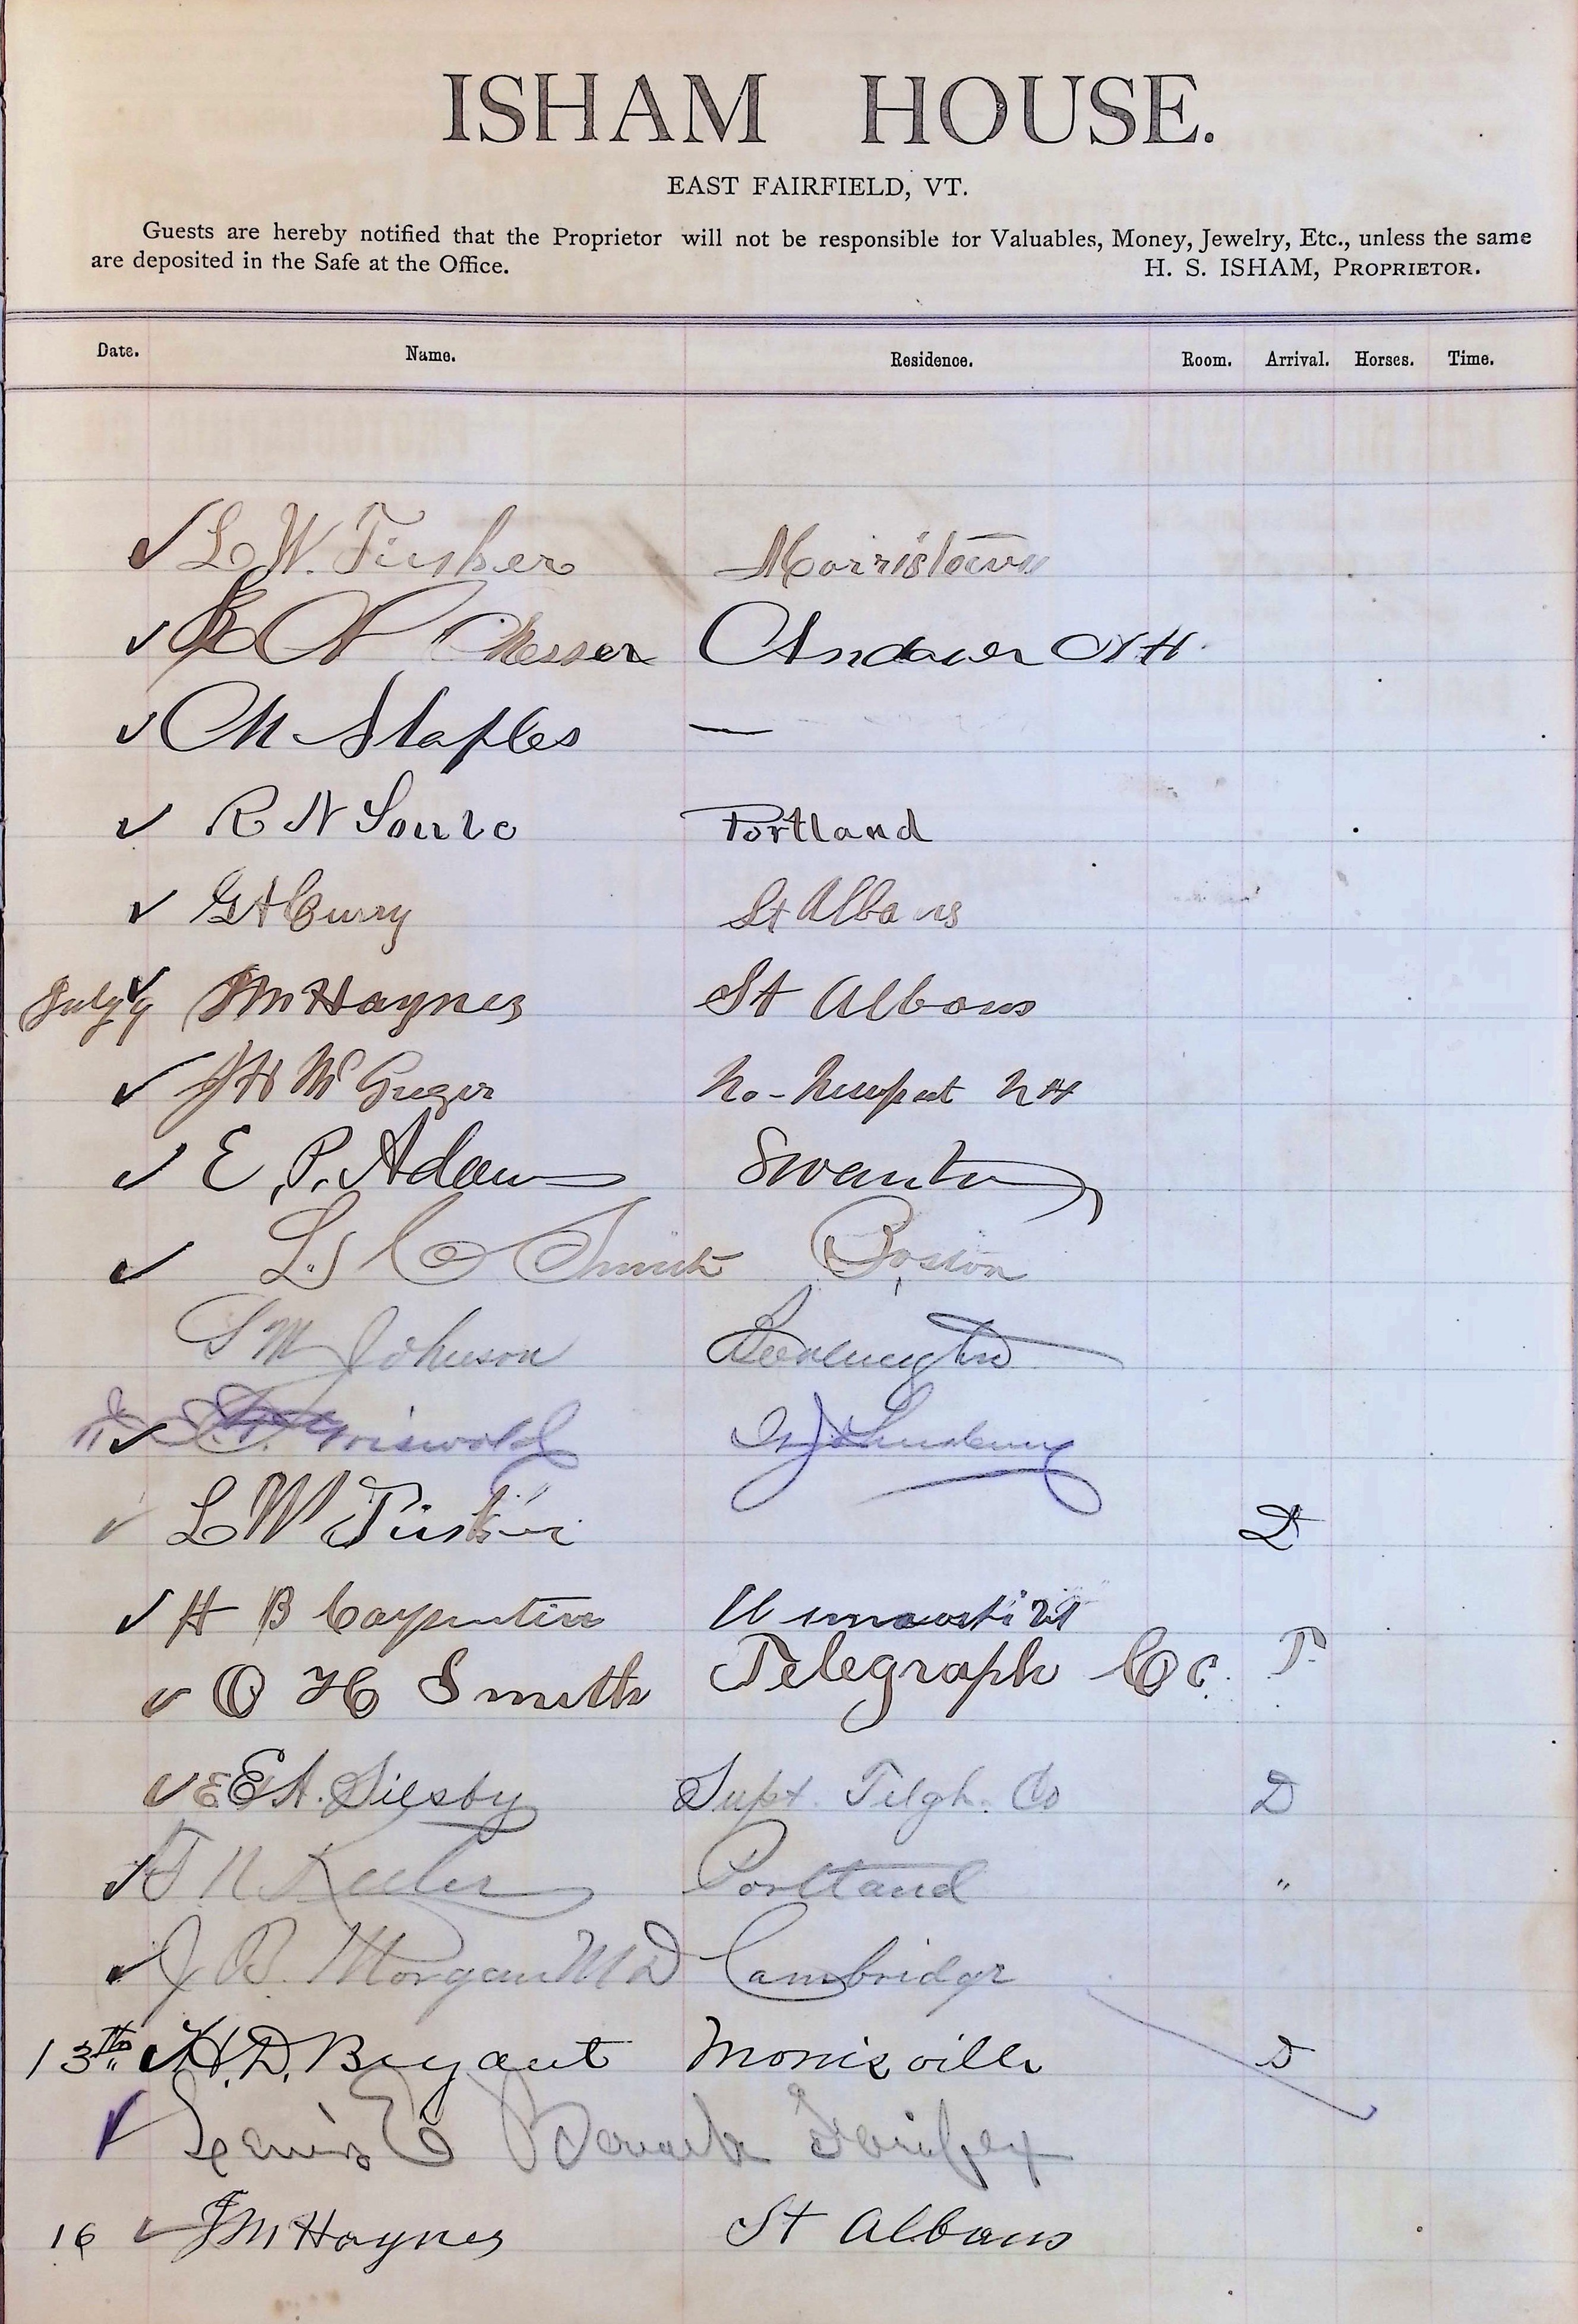 ISHAM HOUSE.
EAST FAIRFIELD, VT.
Guests are hereby notified that the Proprietor will not be responsible for Valuables, Money, Jewelry, Etc., unless the same
are deposited in the Safe at the Office. H. S. ISHAM, PROPRIETOR.
Date. Name. Residence. Room. Arrival. Horses. Time.
✓ L W. Morristown
✓ Messer Andover N H.
✓ C M Staples —
✓ R N Soule Portland
✓ G A Curry St Albans
July 9 ✓ J M Haynes St Albans
✓ J H McGregor No - Newport N H
✓ E. P. Adams Swanton
✓ L. C Smith Boston
S M Johnson Burlington
✓ Griswold St Johnsbury
✓ L W D
✓ H B Carpenter Winooski Vt
✓ O H Smith Telegraph Co. T
✓ E A. Silsby Supt. Telgh. Co D
✓ F N Keeler Portland "
✓ J B. Morgan M D Cambridge
13th ✓ H. D. Bryant Morrisville D
✓ Lewis Fairfax
16 ✓ J M Haynes St Albans